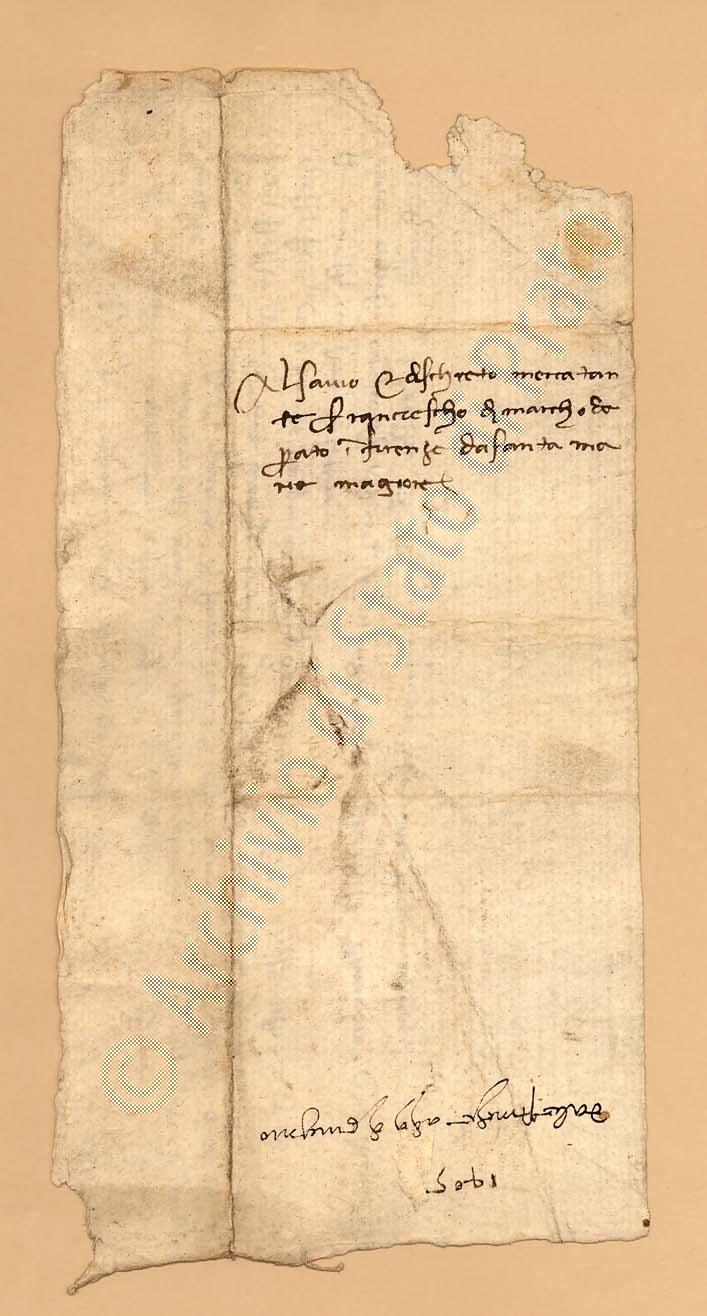 Al savio & dischreto merchatan
te franciescho di marcho da
prato i firenze da santa ma
ria magiore
1405
© Archivio di Stato di Prato